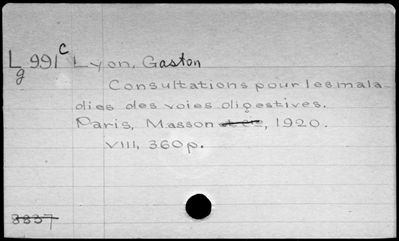 L 991 c Lyon, Gaston
g
Consultations pour les mala-
dies des voies digestives.
Paris, Masson et Cie, 1920.
VIII, 360p.
8337